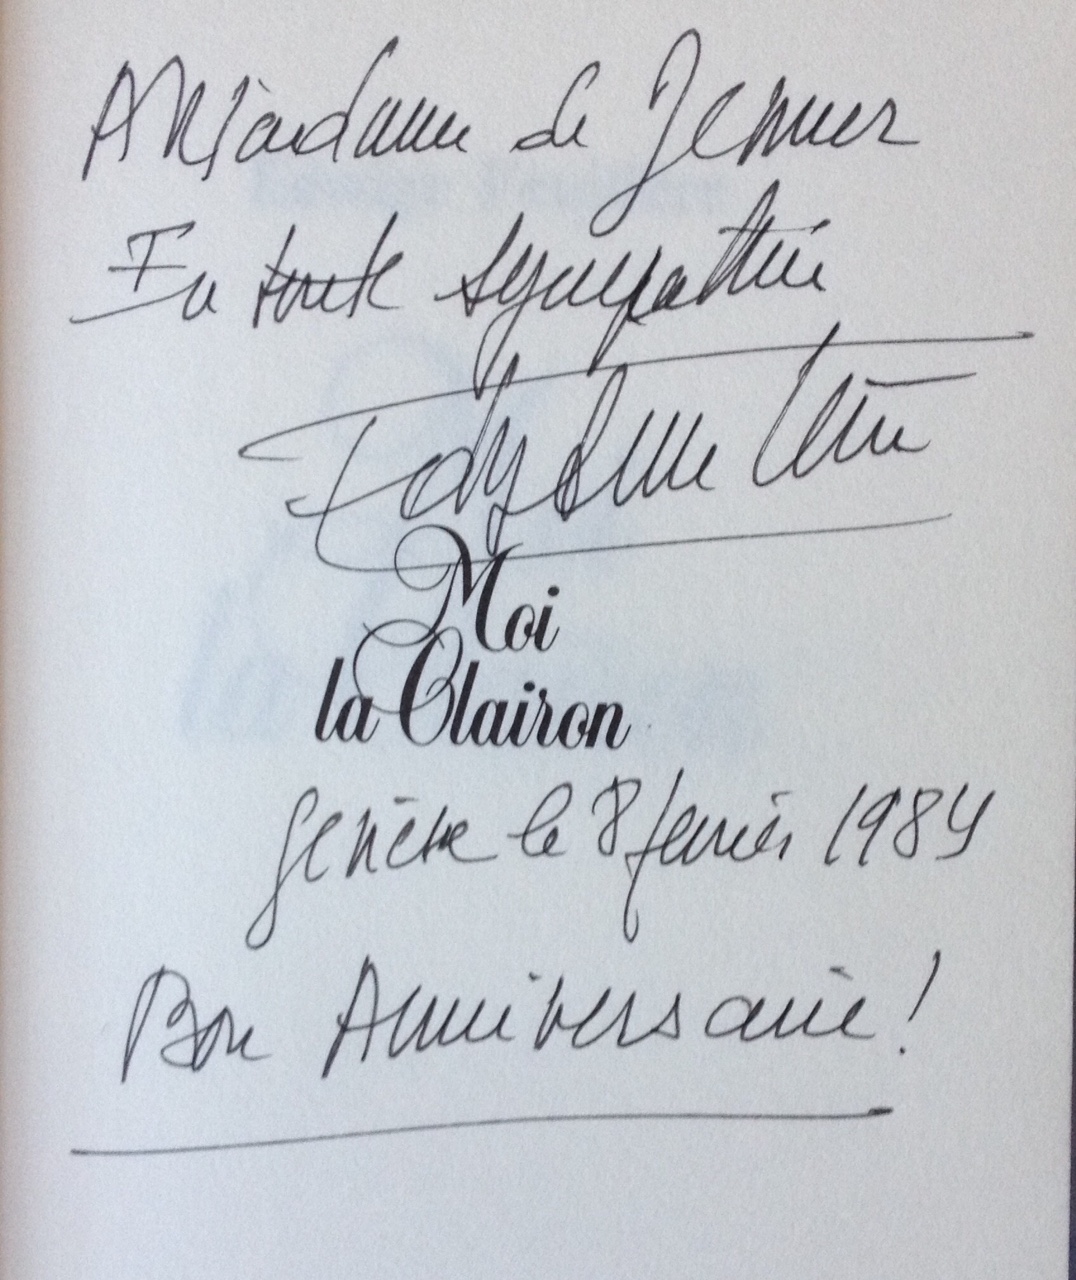 A Madame de Jenner
En toute sympathie
Edwige Feuillère
Moi
la Clairon
Genève le 8 février 1984
Bon Anniversaire!